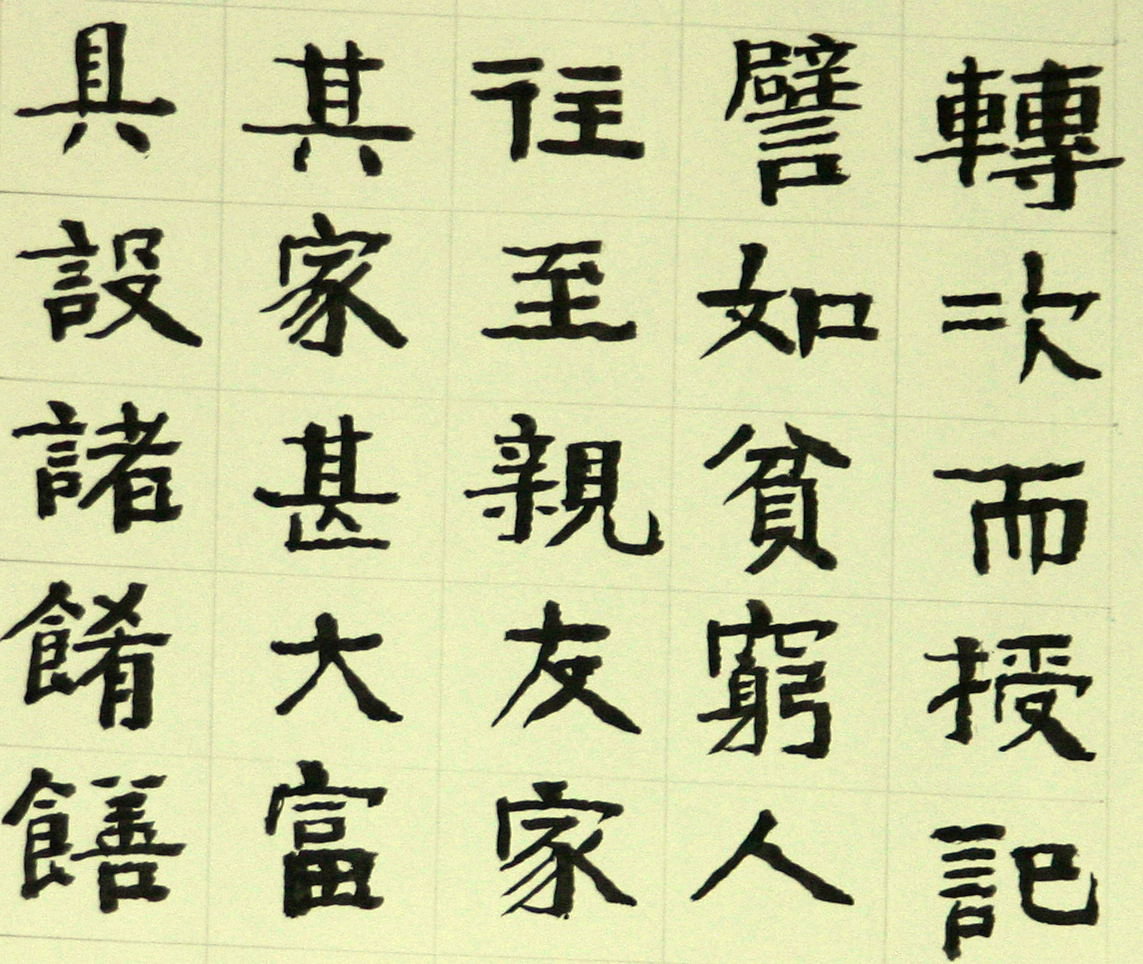 轉次而授記
譬如貧窮人
往至親友家
其家甚大富
具設諸餚饍